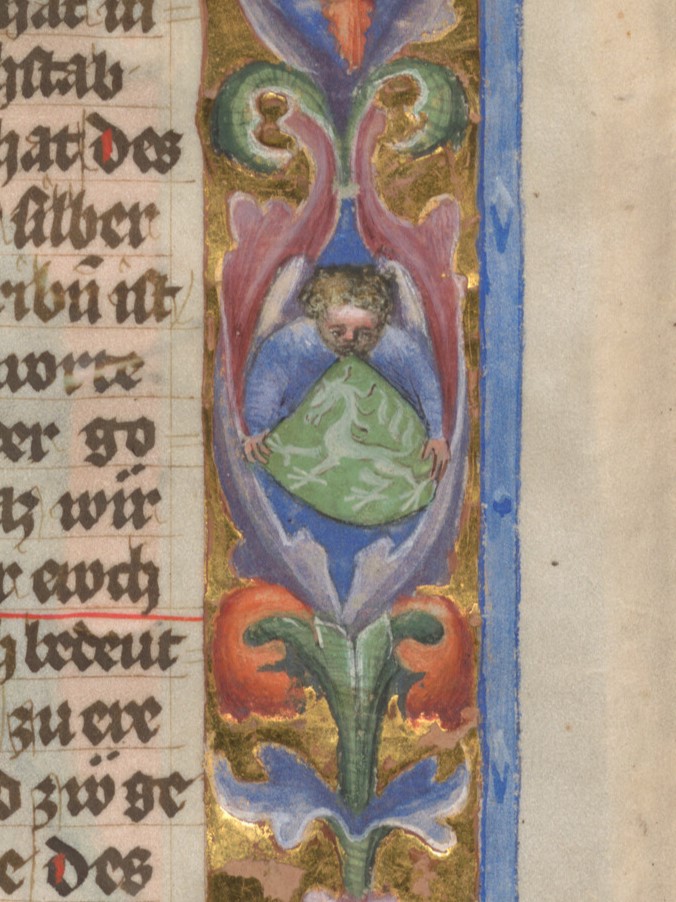 hat in
chstab
hat des
silber
ribũ ist
worte
er go
wir
ewch
bedeut
zu ere
zwo ge
des